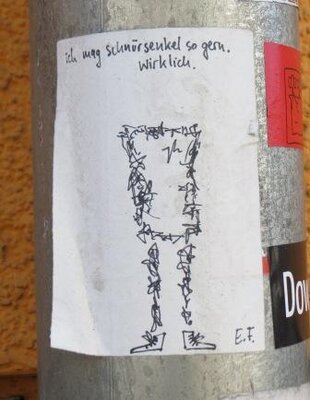 ich mag schnürsenkel so gern.
Wirklich.
E.F.
Dow